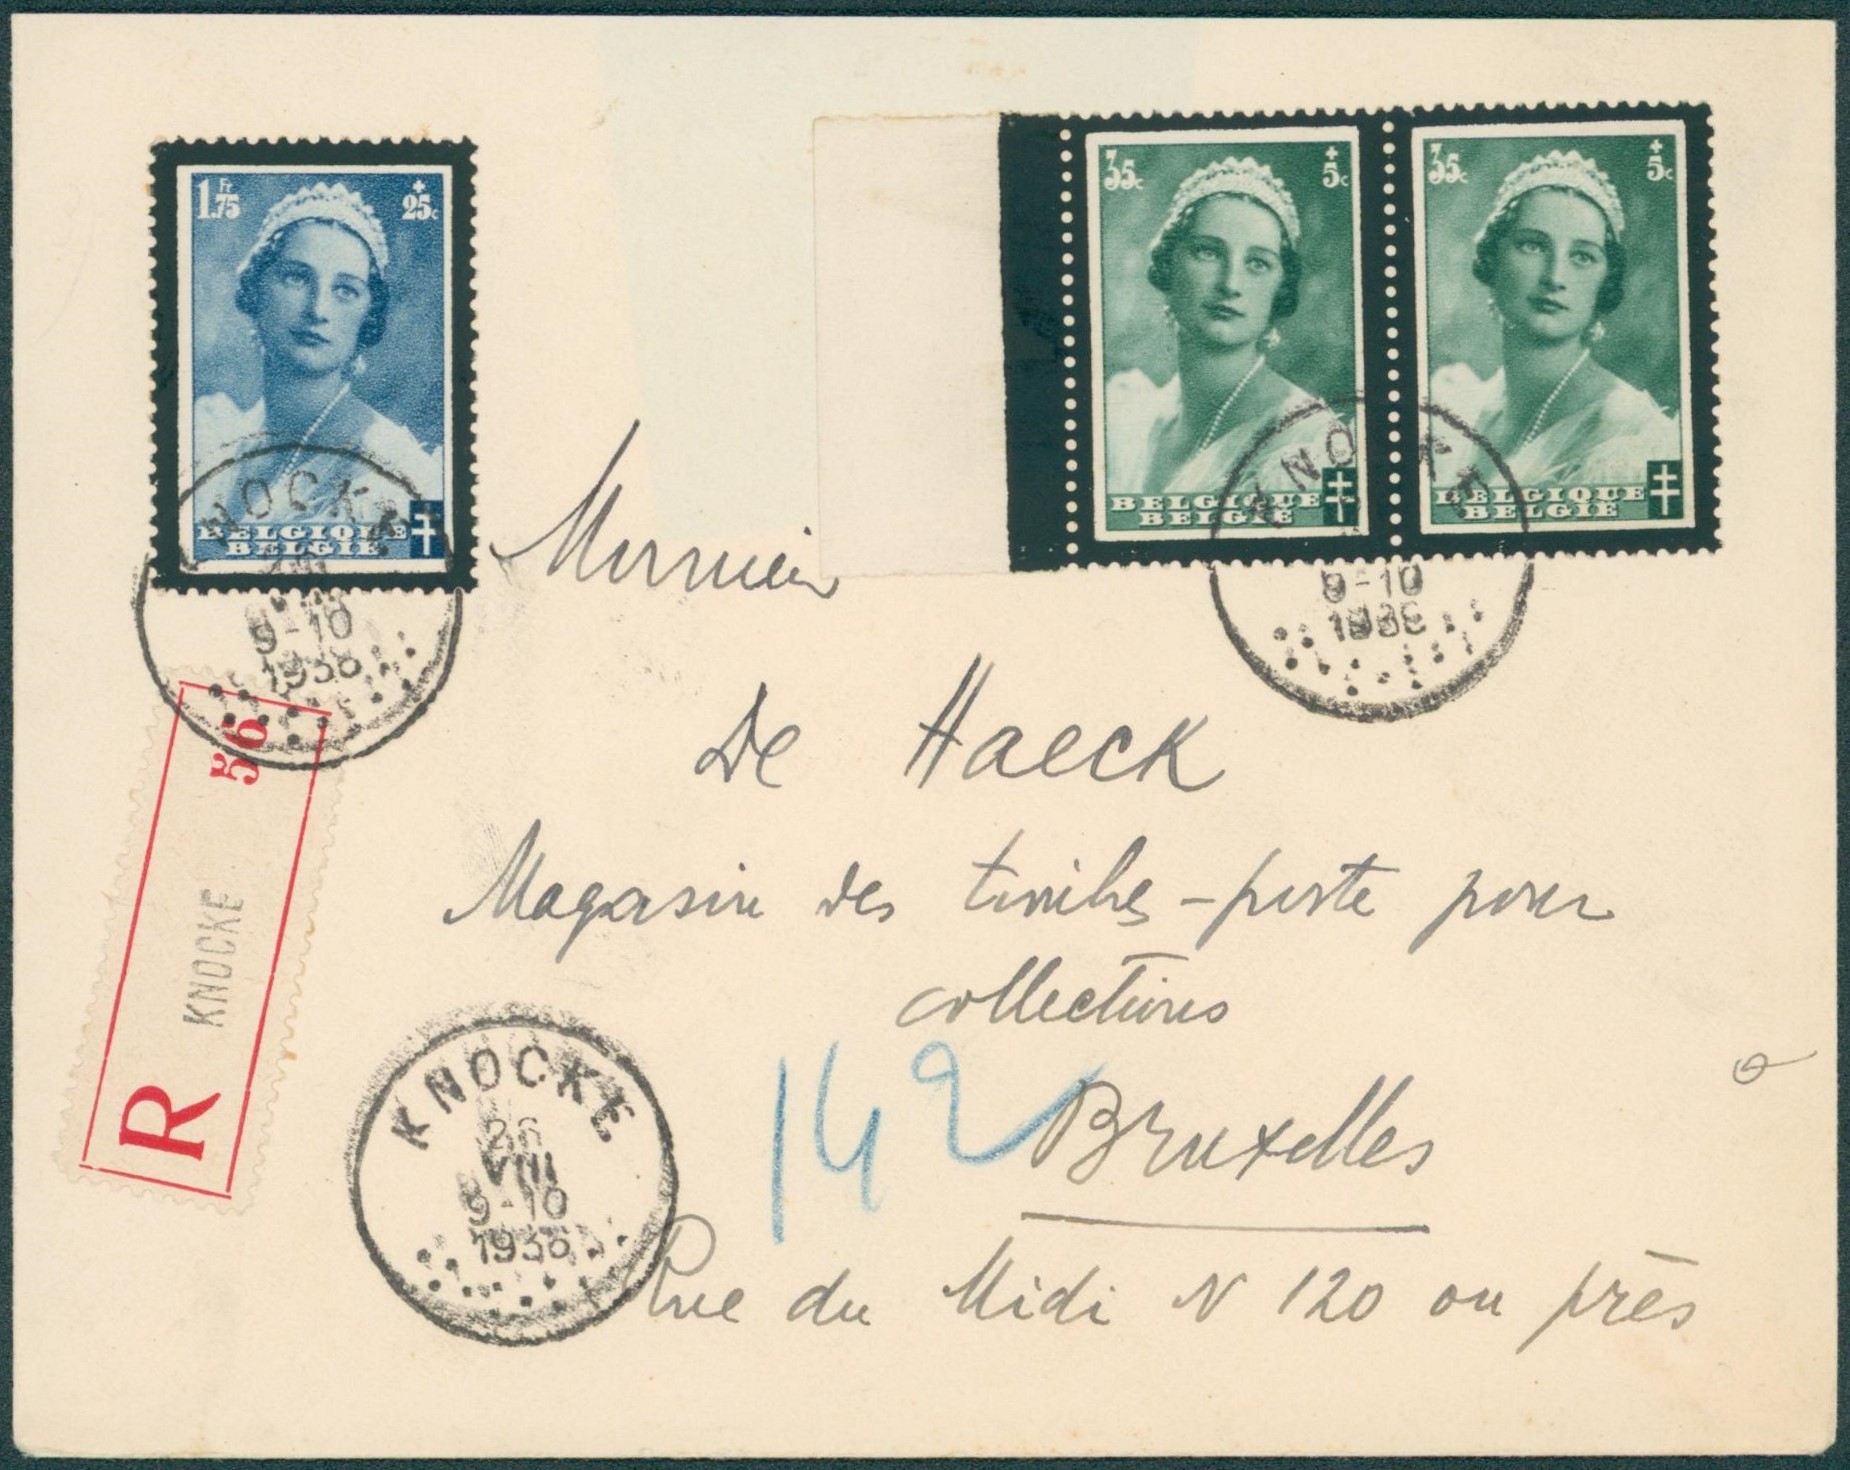 1.75 Fr + 25c
BELGIQUE
BELGIË
35c + 5c
BELGIQUE
BELGIË
35c + 5c
BELGIQUE
BELGIË
KNOCKE
VIII
9-10
1936
KNOCKE
9-10
1936
Monsieur
De Haeck
Magasin des timbres-poste pour
collections
Bruxelles
Rue du Midi N 120 ou près
142
R KNOCKE 56
KNOCKE
26
VIII
9-10
1936